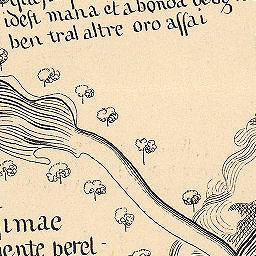 idest mana et abonda de og
ben tral altre oro assai
imae
ente peret-